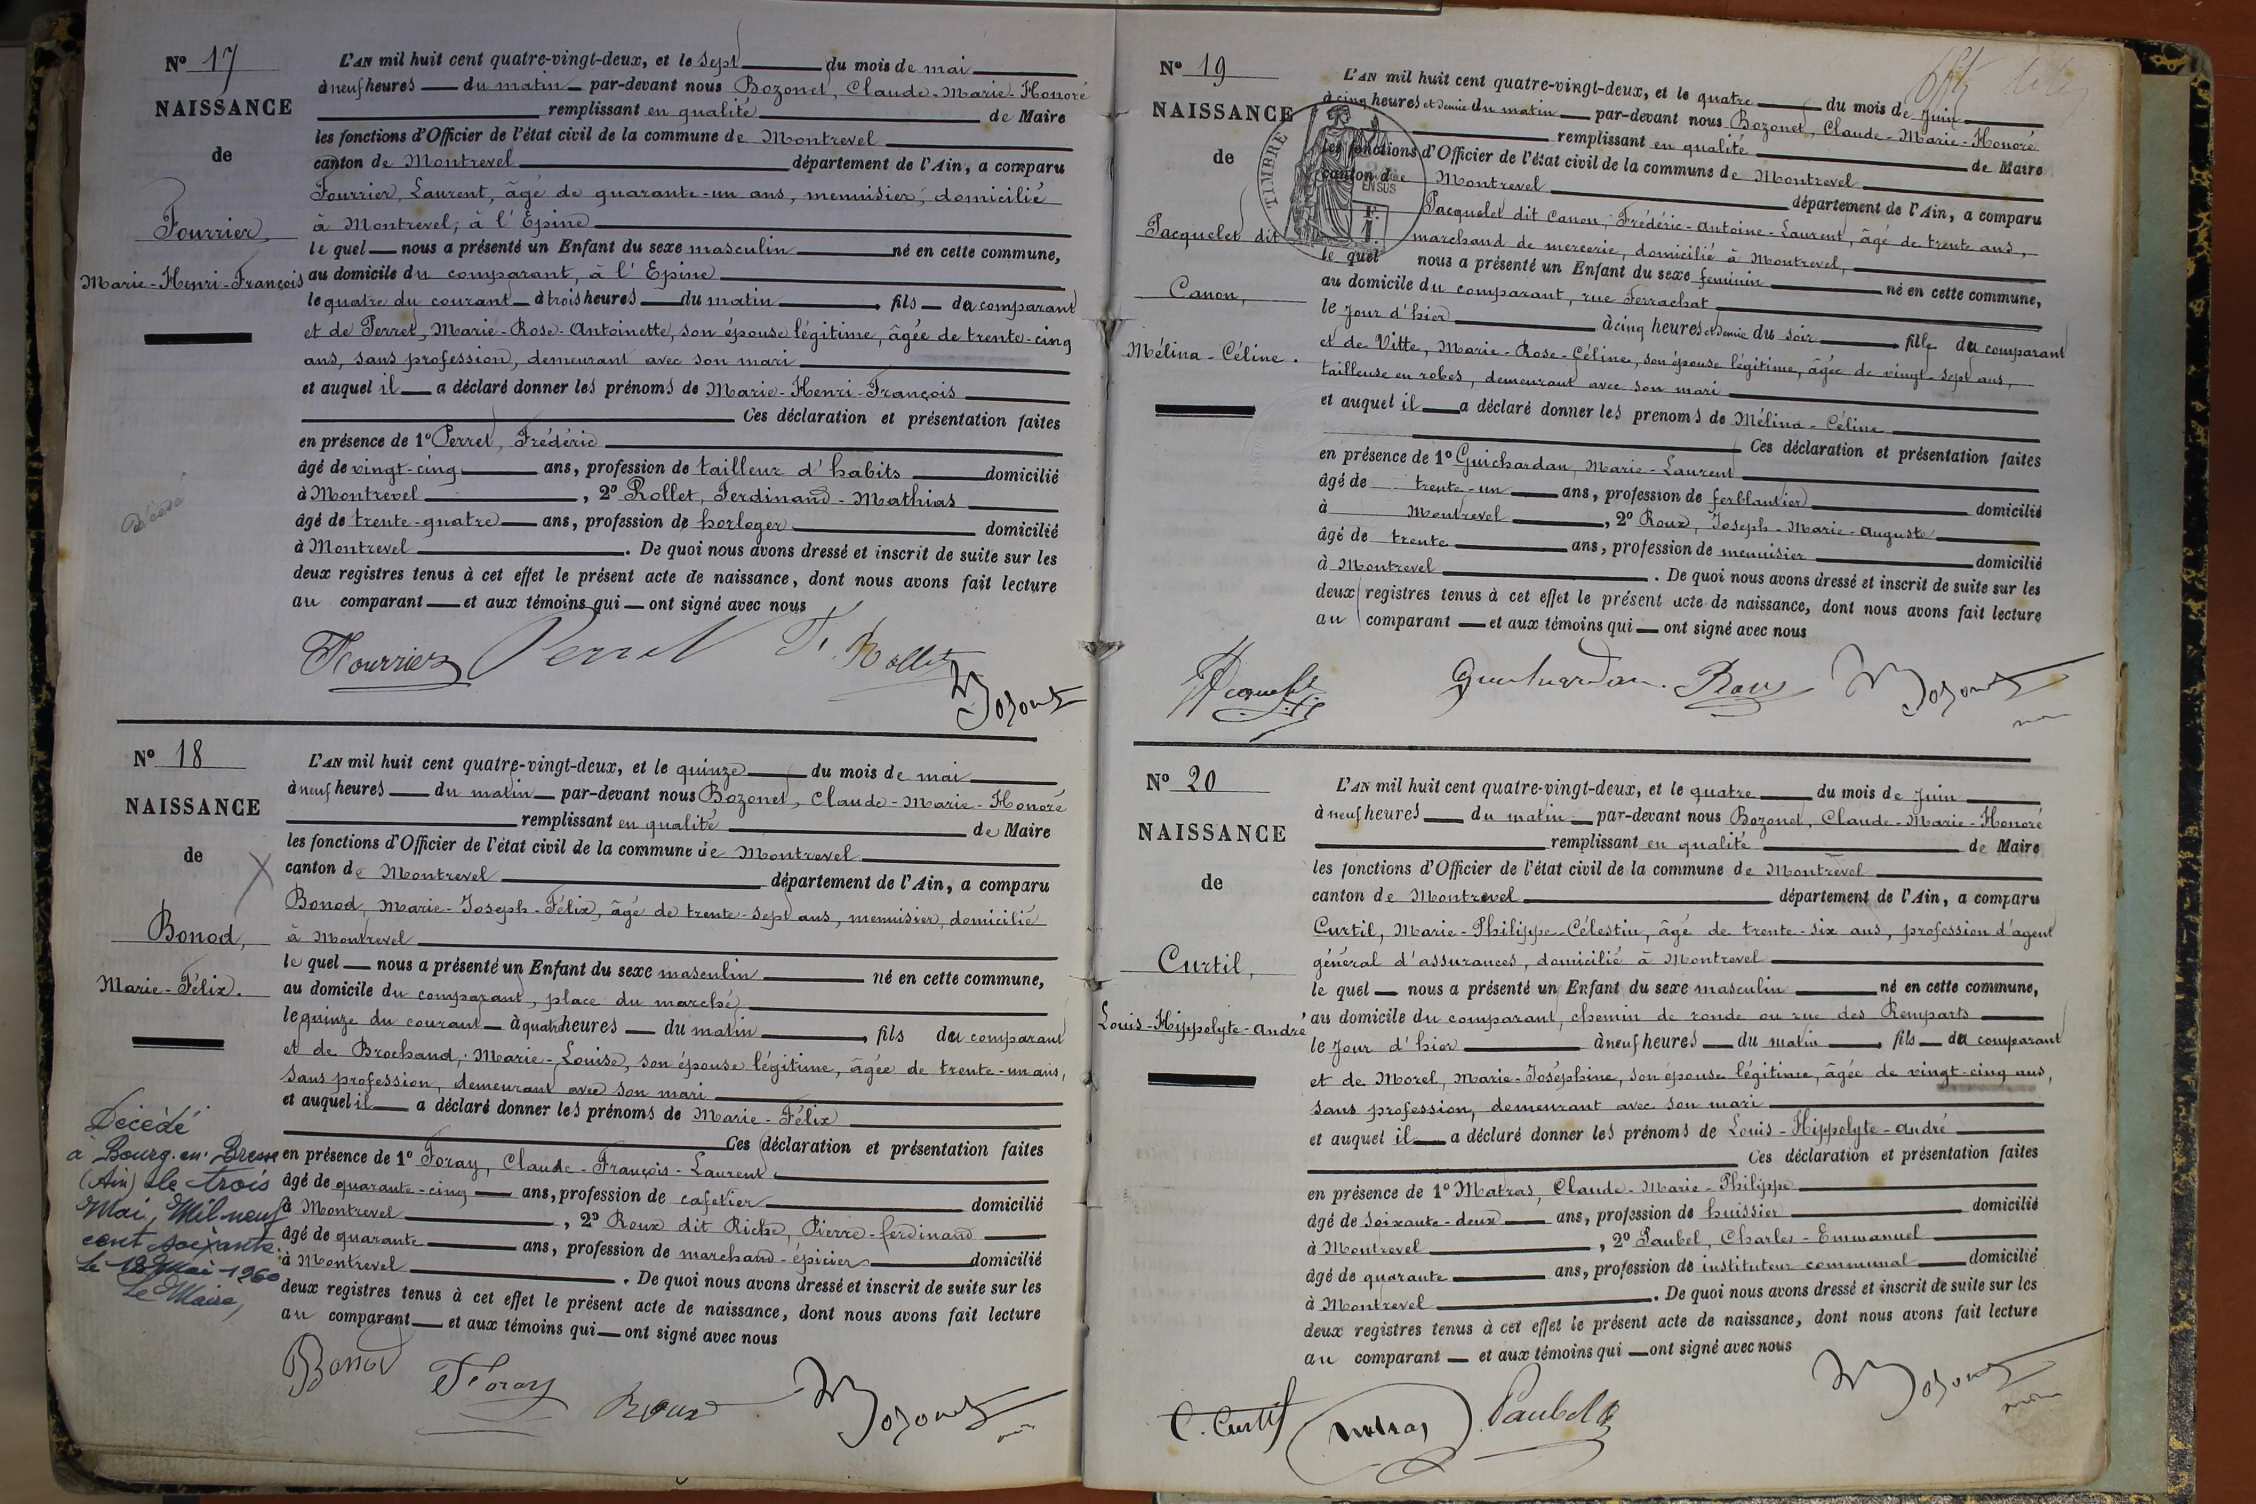 Nº 17
NAISSANCE
de
Fourrier,
Marie-Henri-François
Décédé
L'AN mil huit cent quatre-vingt-deux, et le sept du mois de mai
à neuf heures du matin par-devant nous Bozonet, Claude-Marie-Honoré
remplissant en qualité de Maire
les fonctions d'Officier de l'état civil de la commune de Montrevel
canton de Montrevel département de l'Ain, a comparu
Fourrier, Laurent, âgé de quarante-un ans, menuisier, domicilié
à Montrevel, à l'Epine
le quel nous a présenté un Enfant du sexe masculin né en cette commune,
au domicile du comparant, à l'Epine
le quatre du courant à trois heures du matin, fils du comparant
et de Perret, Marie-Rose-Antoinette, son épouse légitime, âgée de trente-cinq
ans, sans profession, demeurant avec son mari
et auquel il a déclaré donner les prénoms de Marie-Henri-François
Ces déclaration et présentation faites
en présence de 1º Perret, Frédéric
âgé de vingt-cinq ans, profession de tailleur d'habits domicilié
à Montrevel, 2º Rollet, Ferdinand-Mathias
âgé de trente-quatre ans, profession de horloger domicilié
à Montrevel. De quoi nous avons dressé et inscrit de suite sur les
deux registres tenus à cet effet le présent acte de naissance, dont nous avons fait lecture
au comparant et aux témoins qui ont signé avec nous
Fourrier Perret F. Rollet
Bozonet
Nº 18
NAISSANCE
de
Bonod,
Marie-Félix.
Décédé
à Bourg-en-Bresse
(Ain) le trois
Mai, Mil neuf
cent soixante.
Le 18 Mai 1960
Le Maire,
L'AN mil huit cent quatre-vingt-deux, et le quinze du mois de mai
à neuf heures du matin par-devant nous Bozonet, Claude-Marie-Honoré
remplissant en qualité de Maire
les fonctions d'Officier de l'état civil de la commune de Montrevel
canton de Montrevel département de l'Ain, a comparu
Bonod, Marie-Joseph-Félix, âgé de trente-sept ans, menuisier, domicilié
à Montrevel
le quel nous a présenté un Enfant du sexe masculin né en cette commune,
au domicile du comparant, place du marché
le quinze du courant à quatre heures du matin, fils du comparant
et de Brochand, Marie-Louise, son épouse légitime, âgée de trente-un ans,
sans profession, demeurant avec son mari
et auquel il a déclaré donner les prénoms de Marie-Félix
Ces déclaration et présentation faites
en présence de 1º Foray, Claude-François-Laurent
âgé de quarante-cinq ans, profession de cafetier domicilié
à Montrevel, 2º Roux dit Riche, Pierre-ferdinand
âgé de quarante ans, profession de marchand-épicier domicilié
à Montrevel. De quoi nous avons dressé et inscrit de suite sur les
deux registres tenus à cet effet le présent acte de naissance, dont nous avons fait lecture
au comparant et aux témoins qui ont signé avec nous
Bonod Foray Roux Bozonet
Nº 19
NAISSANCE
de
Pacquelet dit
Canon,
Mélina-Céline.
TIMBRE
EN SUS
L'AN mil huit cent quatre-vingt-deux, et le quatre du mois de Juin
à cinq heures et demie du matin par-devant nous Bozonet, Claude-Marie-Honoré
remplissant en qualité de Maire
les fonctions d'Officier de l'état civil de la commune de Montrevel
canton de Montrevel département de l'Ain, a comparu
Pacquelet dit Canon, Frédéric-Antoine-Laurent, âgé de trente ans,
marchand de mercerie, domicilié à Montrevel,
le quel nous a présenté un Enfant du sexe féminin né en cette commune,
au domicile du comparant, rue Ferrachat
le jour d'hier à cinq heures et demie du soir, fille du comparant
et de Vitte, Marie-Rose-Céline, son épouse légitime, âgée de vingt-sept ans,
tailleuse en robes, demeurant avec son mari
et auquel il a déclaré donner les prénoms de Mélina-Céline
Ces déclaration et présentation faites
en présence de 1º Guichardan, Marie-Laurent
âgé de trente-un ans, profession de ferblantier domicilié
à Montrevel, 2º Roux, Joseph-Marie-Auguste
âgé de trente ans, profession de menuisier domicilié
à Montrevel. De quoi nous avons dressé et inscrit de suite sur les
deux registres tenus à cet effet le présent acte de naissance, dont nous avons fait lecture
au comparant et aux témoins qui ont signé avec nous
Guichardan Roux Bozonet
Nº 20
NAISSANCE
de
Curtil,
Louis-Hippolyte-André
L'AN mil huit cent quatre-vingt-deux, et le quatre du mois de Juin
à neuf heures du matin par-devant nous Bozonet, Claude-Marie-Honoré
remplissant en qualité de Maire
les fonctions d'Officier de l'état civil de la commune de Montrevel
canton de Montrevel département de l'Ain, a comparu
Curtil, Marie-Philippe-Célestin, âgé de trente-six ans, profession d'agent
général d'assurances, domicilié à Montrevel
le quel nous a présenté un Enfant du sexe masculin né en cette commune,
au domicile du comparant, chemin de ronde ou rue des Remparts
le jour d'hier à neuf heures du matin, fils du comparant
et de Morel, Marie-Joséphine, son épouse légitime, âgée de vingt-cinq ans,
sans profession, demeurant avec son mari
et auquel il a déclaré donner les prénoms de Louis-Hippolyte-André
Ces déclaration et présentation faites
en présence de 1º Matras, Claude-Marie-Philippe
âgé de soixante-deux ans, profession de huissier domicilié
à Montrevel, 2º Paubel, Charles-Emmanuel
âgé de quarante ans, profession de instituteur communal domicilié
à Montrevel. De quoi nous avons dressé et inscrit de suite sur les
deux registres tenus à cet effet le présent acte de naissance, dont nous avons fait lecture
au comparant et aux témoins qui ont signé avec nous
C. Curtil Matras Paubel Bozonet